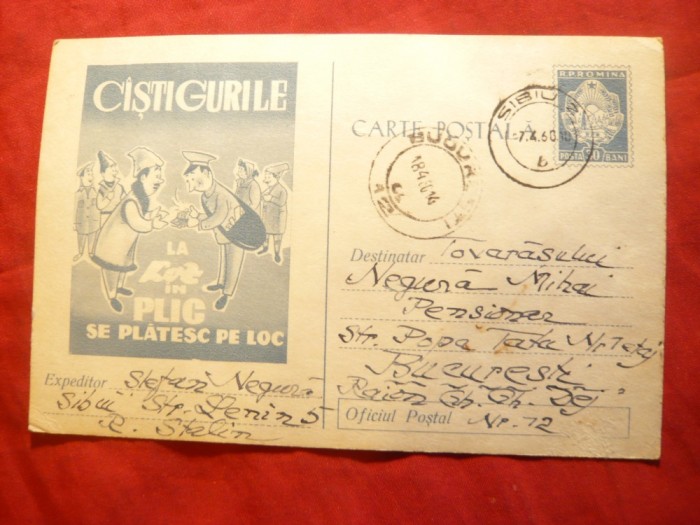 CÎȘTIGURILE
LA
Loz
IN
PLIC
SE PLĂTESC PE LOC
CARTE POȘTALĂ
R.P.ROMINA
POSTA BANI
SIBIU
-7.4.60
b
18.4.60.14
Destinatar Tovarăsului
Negură Mihai
Pensioner
Str. Popa Tatu Nr.
București
Raion Gh. Gh. Dej
Oficiul Poștal Nr. 12
Expeditor Ștefan Negură
Sibiu Str. Lenin 5
R. Stalin